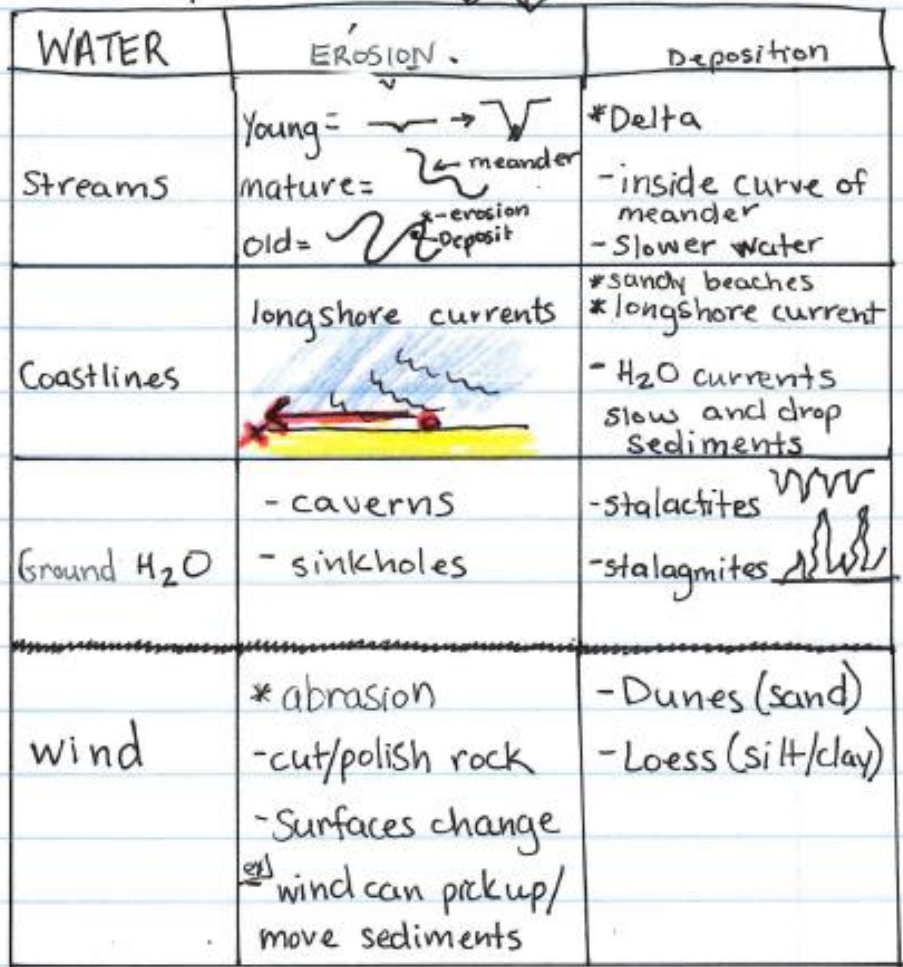 WATER
EROSION.
Deposition
Streams
Young=
meander
mature=
-erosion
old=
Deposit
*Delta
-inside curve of
meander
- Slower water
Coastlines
longshore currents
*sandy beaches
*longshore current
- H₂O currents
slow and drop
sediments
Ground H₂O
- caverns
- sinkholes
-stalactites
-stalagmites
wind
* abrasion
-cut/polish rock
-Surfaces change
ex) wind can pick up/
move sediments
-Dunes (sand)
-Loess (silt/clay)